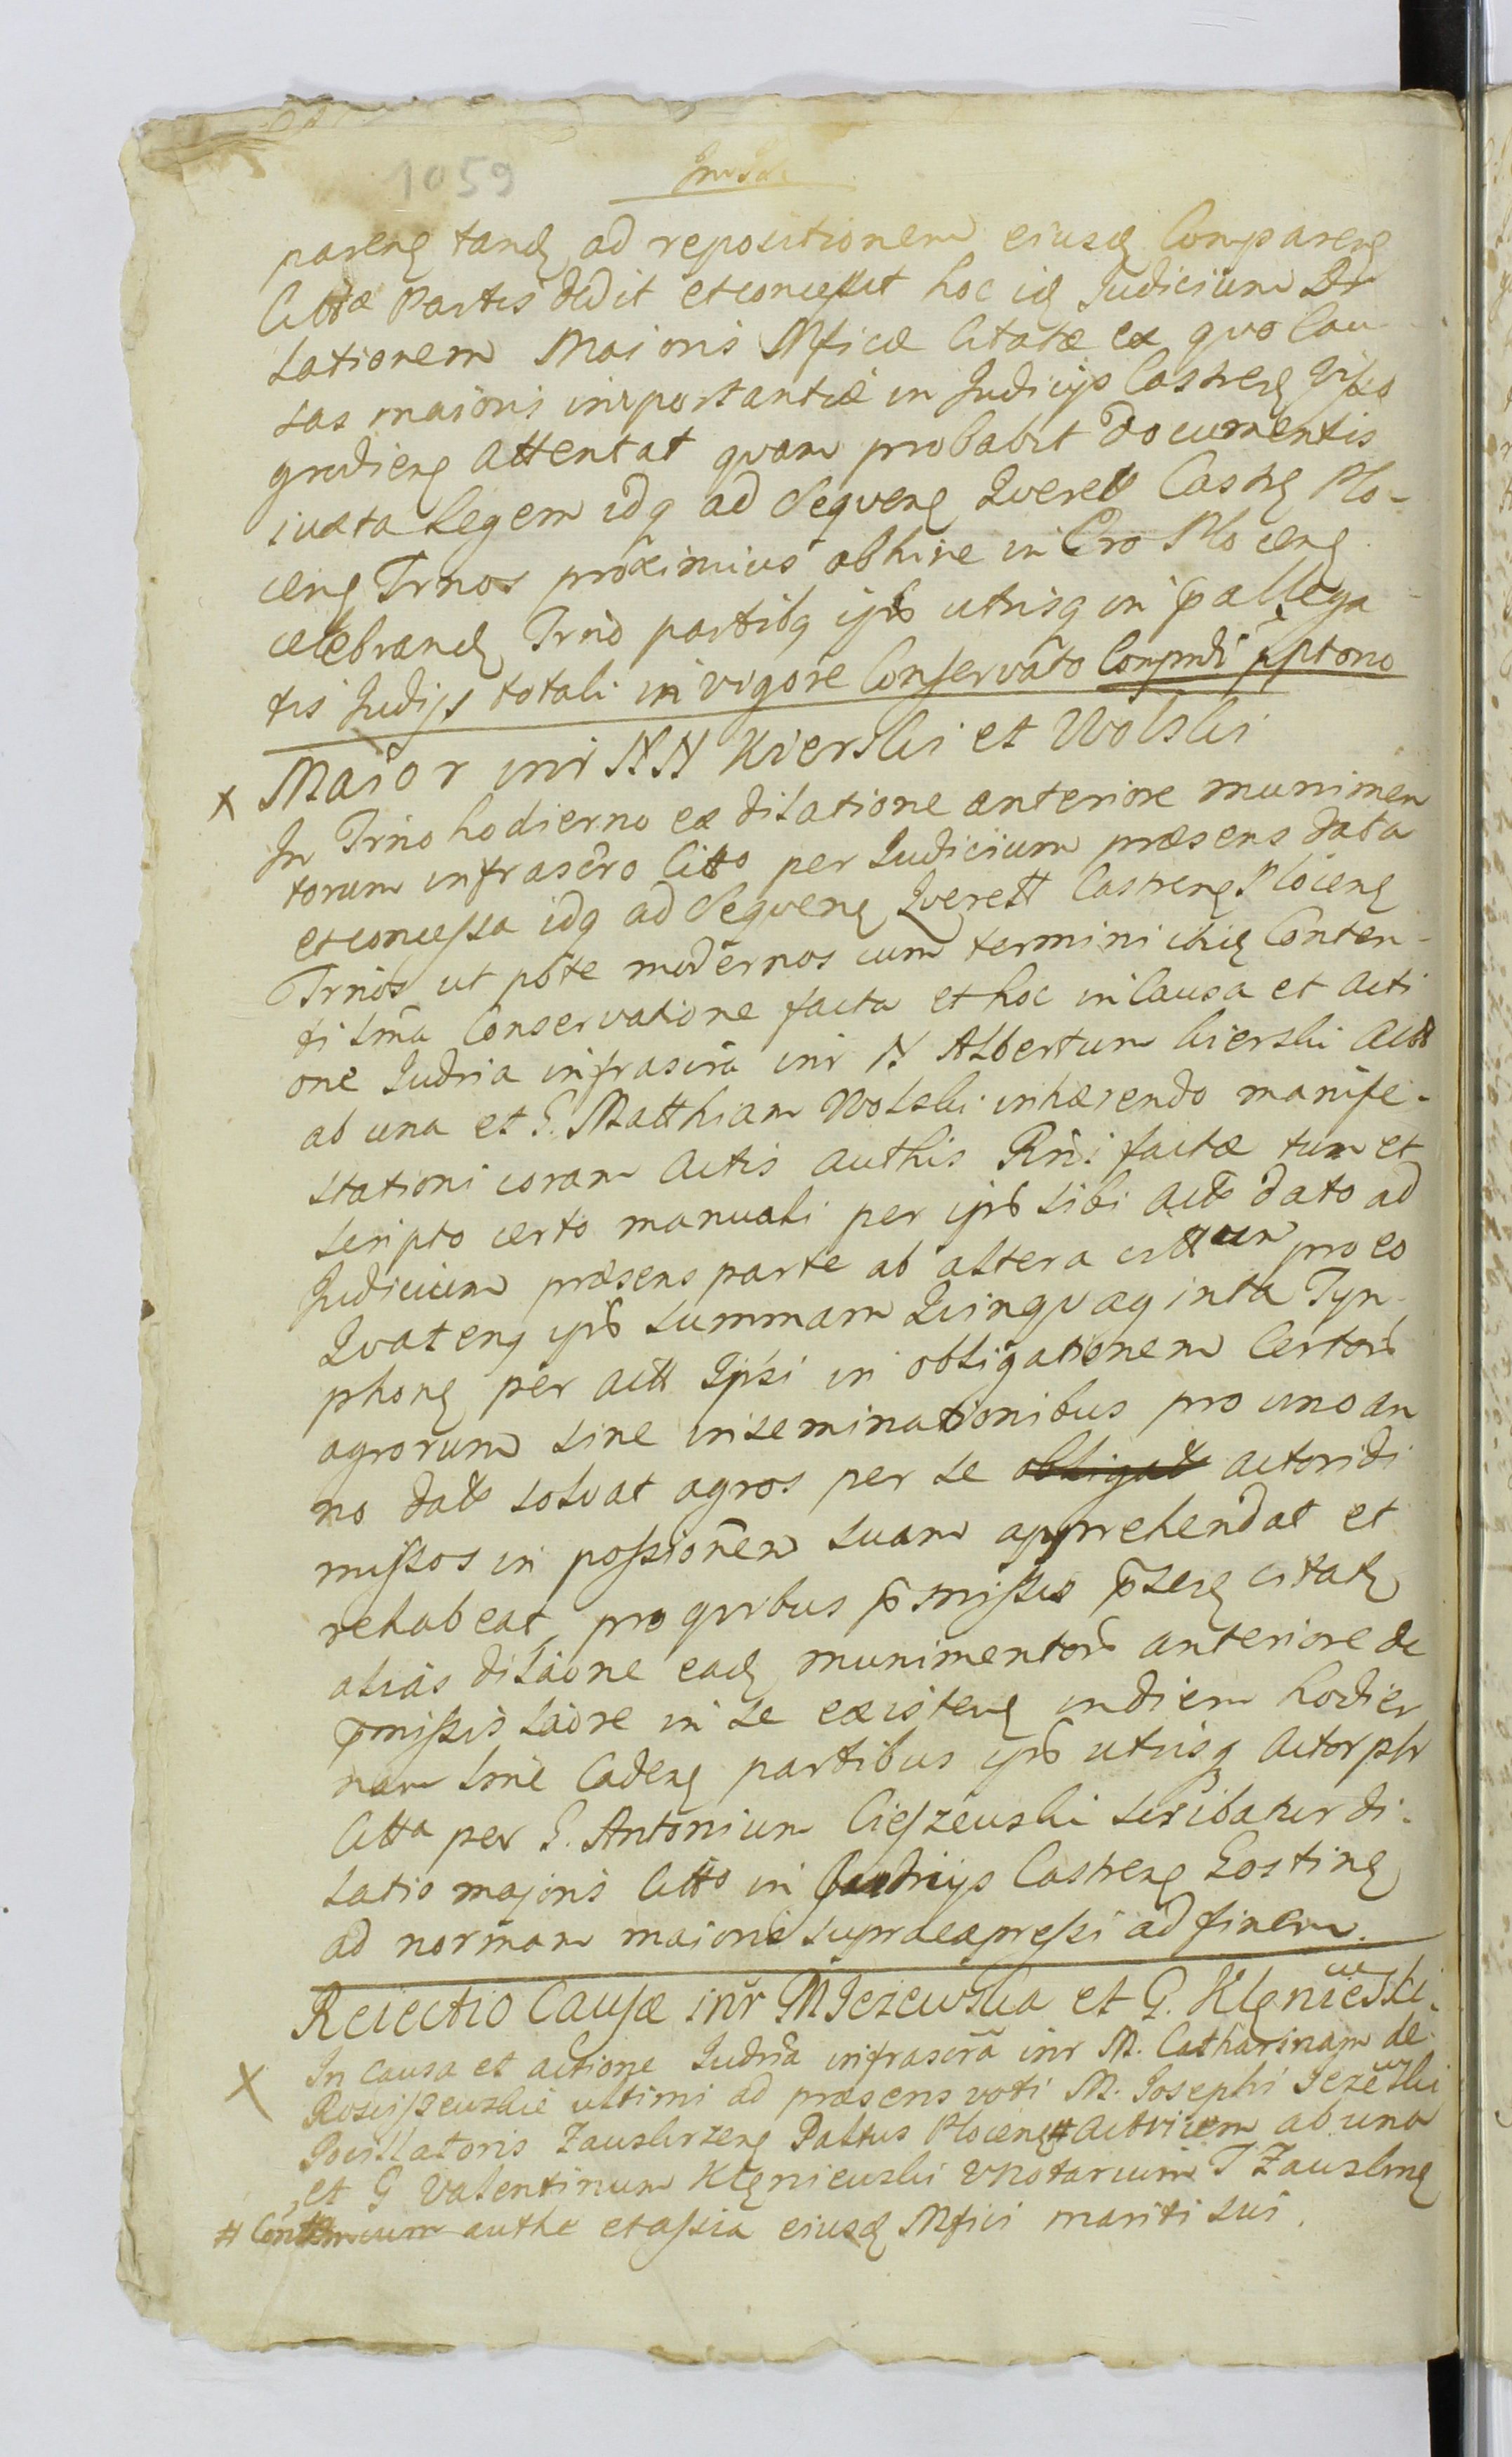 1059
pareng tandę ad repositionem eiusdę Compareng
Cittæ Partis dedit et concessit hoc idę Judicium Di
lationem Maioris Mficæ Citatæ ex quo Cau
sas maioris importantiæ in Judicijs Castreng
grodieng attentat quam probabit documentis
iuxta Legem idq ad Seqveng Qverell Castrg Plo-
ceng Trnos proximius abhinc in Cro Ploceng
celebrandę Trno partibq ipŏ utrisq in pallega
tis Judijs totali in vigore Conservato Comprdi pptono
Maior inr NN Kierski et Wolski
x In Trno hodierno ex dilatione anteriore munimen
torum infrascro Citto per Judicium præsens data
et concessa idq ad Seqveng Qverell Castreng Ploceng
Trnos ut pote modernos cum termini Conten-
ti sma Conservatione facta et hoc in Causa et acti
one Judria infrascra inr N Albertum Kierski Actt
ab una et G. Matthiam Wolski inhærendo manife-
stationi coram actis authis Rni factæ tum et
scripto certo manuali per ipŏ sibi actŏ dato ad
Judicium præsens parte ab altera cittum pro eo
Qvateng ipŏ summam Qvinqvaginta Tyn-
phong per actt Ipsi in obligationem Certorŏ
agrorum sine inseminationibus pro uno an
no datŏ solvat agros per se obligatŏ actori di
missos in possionem suam apprehendat et
rehabeat pro qvibus pmissis pseng citatę
alias dilaone eadę munimentorŏ anteriore de
pmissis laore in se existeng in diem hodier
nam sme Cadeng partibus ipŏ utrisq actor phr
Citta per G. Antonium Cieszewski scribatur di-
latio majoris Citto in Judicijs Castreng Gosting
ad normam maioris supraexpressi ad finem.
Reiectio Causæ inr M Jezewska et G. Klęniewski.
x In Causa et actione Judria infrascra inr M. Catharinam de
Rosciszewskie ultimi ad præsens voti M. Josephi Jezewski
Pocillatoris Zauskrzeng Paltus Ploceng # actvicem ab una
et G Valentinum Klęniewski VNotarium T Zauskrng
# authe et assia eiusdę Mfici mariti sui.